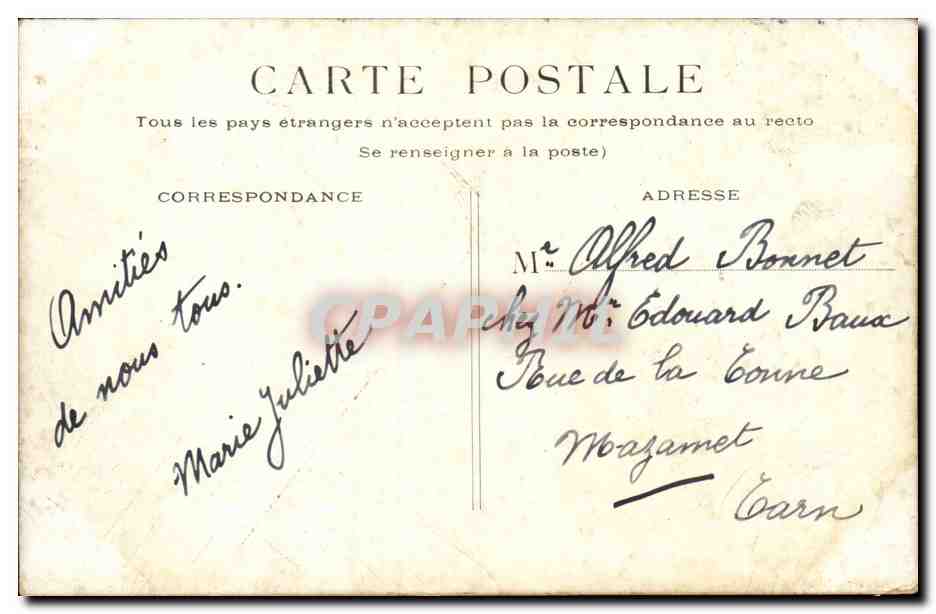 CARTE POSTALE
Tous les pays étrangers n'acceptent pas la correspondance au recto
Se renseigner à la poste)
CORRESPONDANCE
Amitiés
de nous tous.
Marie Juliette
ADRESSE
Mr Alfred Bonnet
chez Mr. Edouard Baux
Rue de la Tonne
Mazamet
Tarn
CPAPHIL